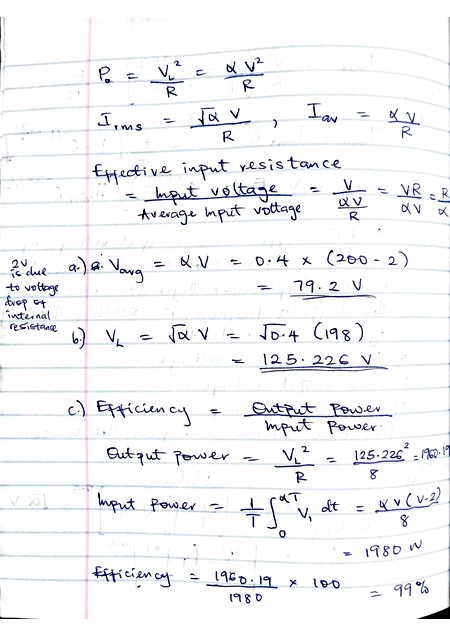 P₀ = V_L² / R = αV² / R
I_rms = √α V / R , I_av = αV / R
Effective input resistance
= Input voltage / Average Input voltage = V / (αV / R) = VR / αV = R / α
2V is due to voltage drop of internal resistance
a.) a. V_avg = α.V = 0.4 × (200 - 2)
= 79.2 V
b.) V_L = √α V = √0.4 (198)
= 125.226 V
c.) Efficiency = Output power / Input power.
Output power = V_L² / R = 125.226² / 8 = 1960.19
Input power = 1/T ∫₀^αT V₁ dt = αV(V-2) / 8
= 1980 W
Efficiency = 1960.19 / 1980 × 100 = 99%